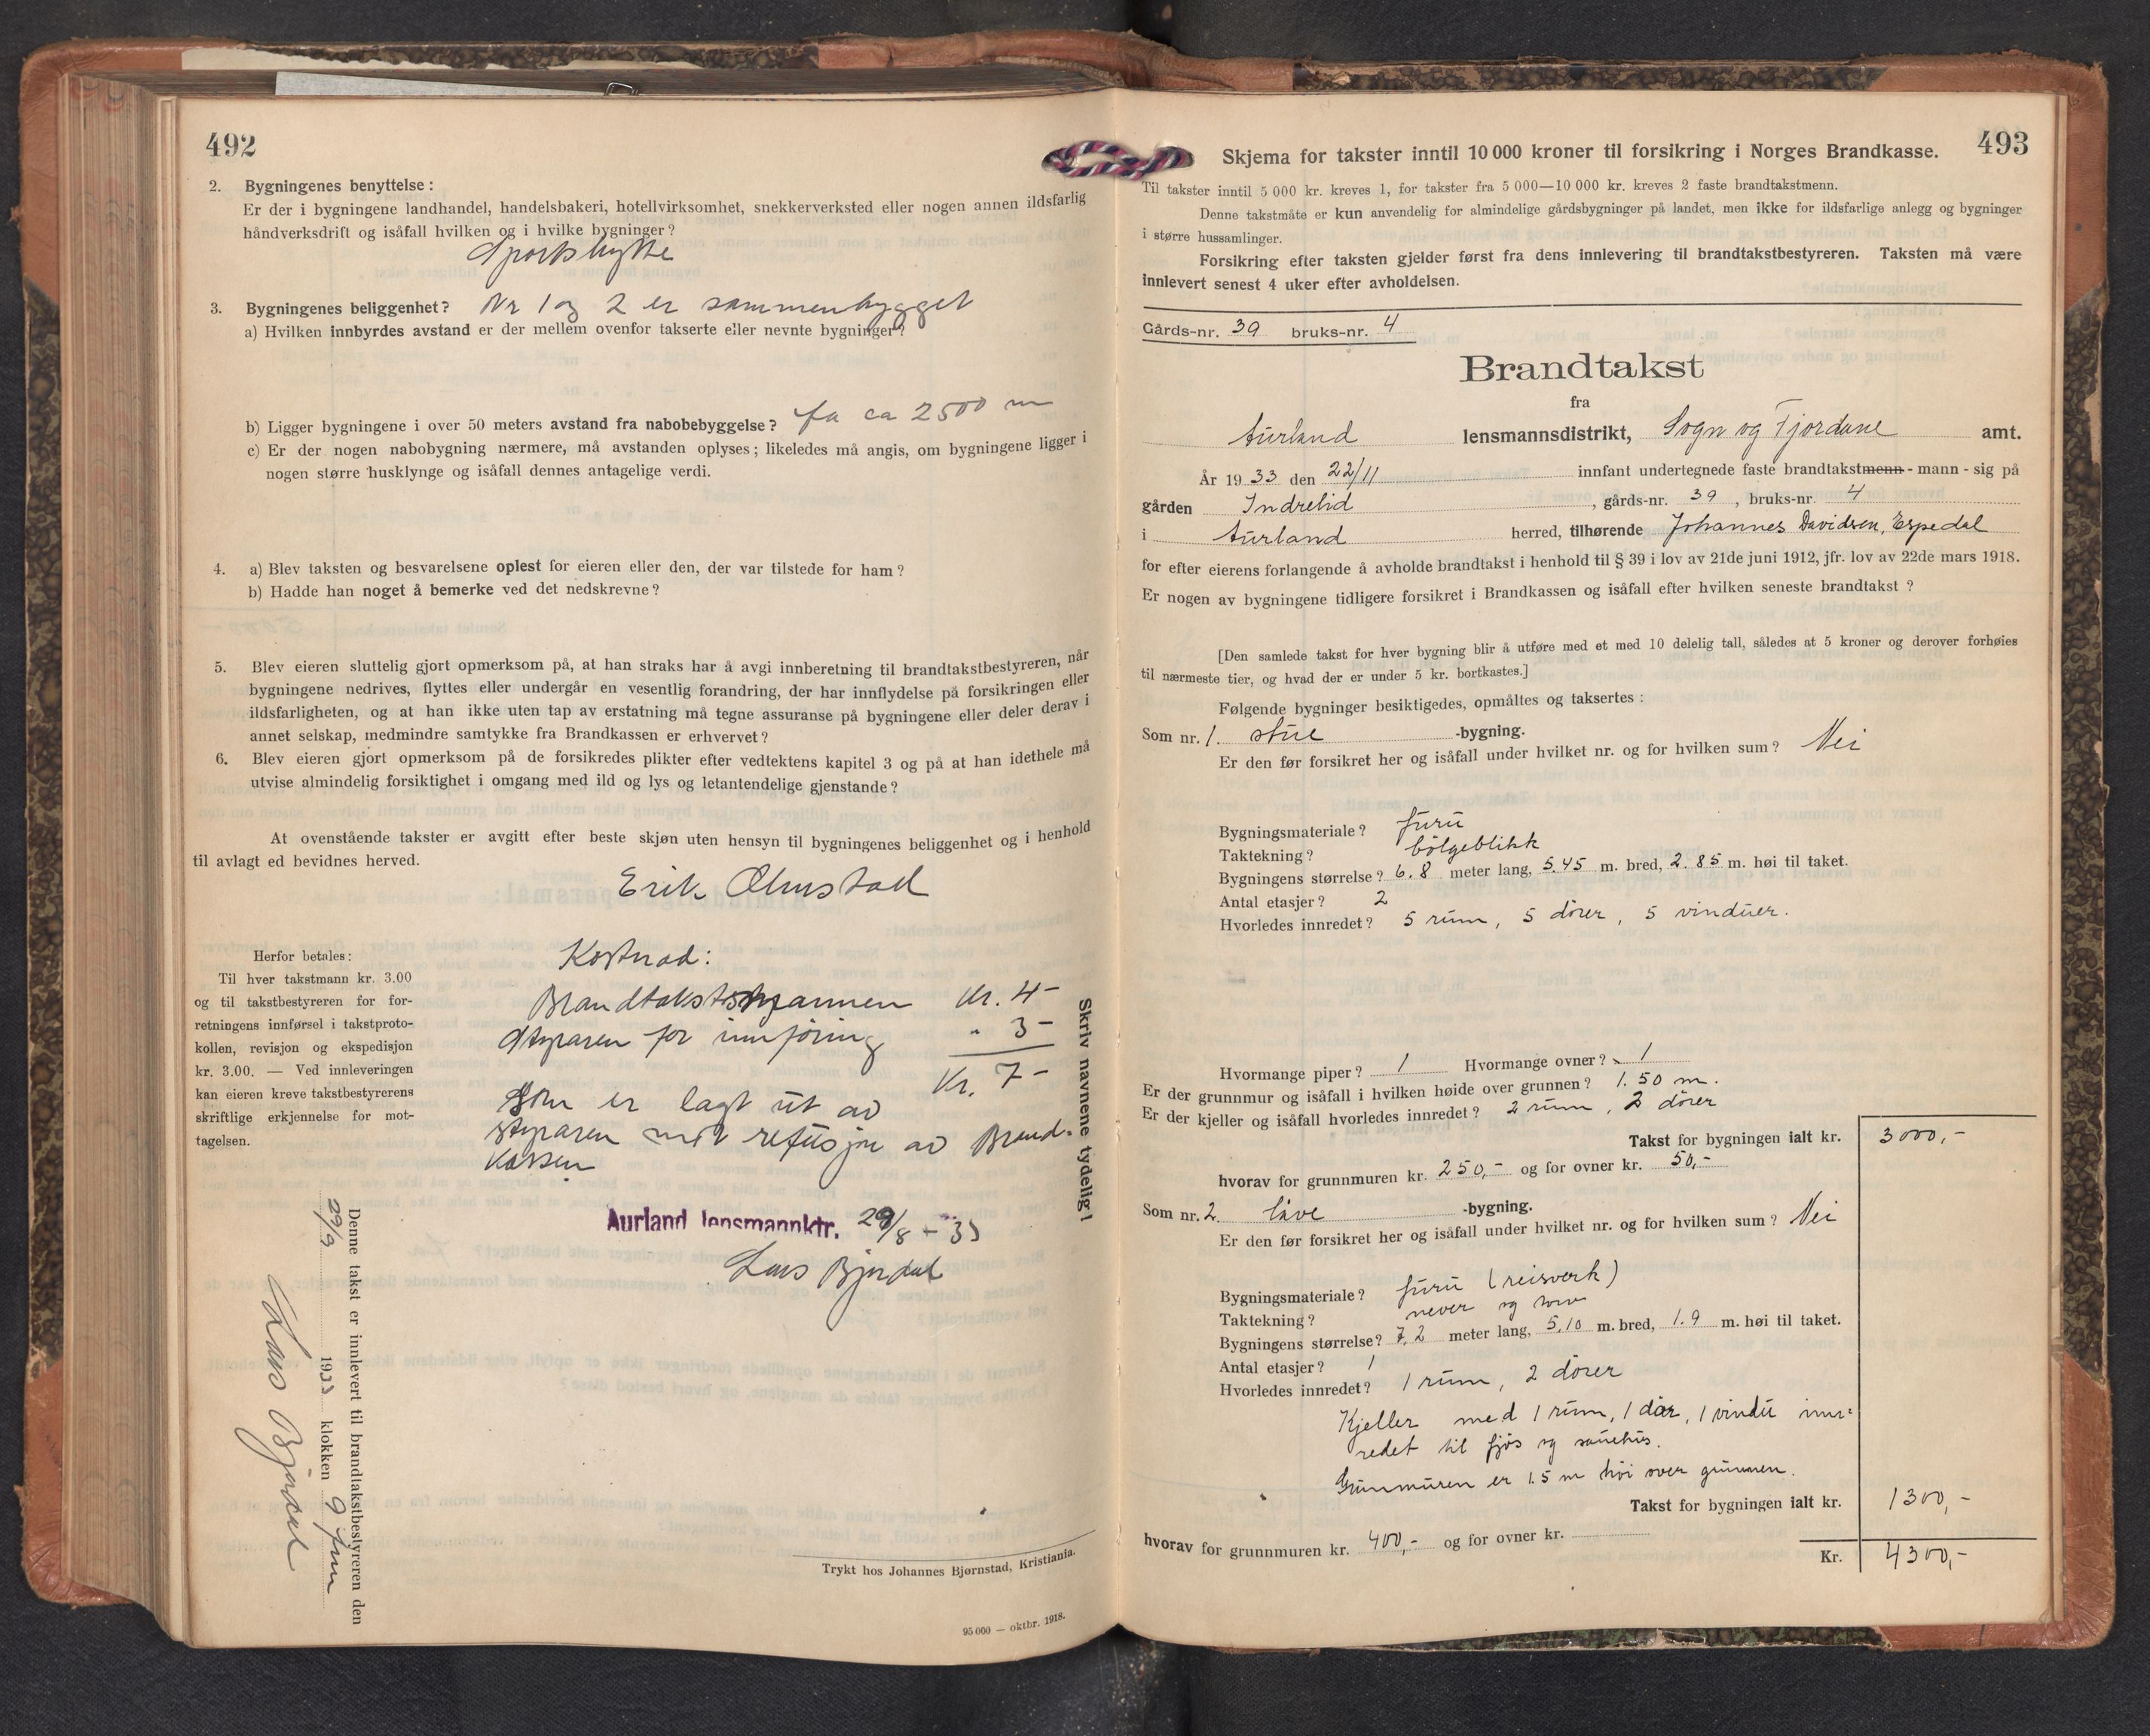 492
2. Bygningenes benyttelse:
Er der i bygningene landhandel, handelsbakeri, hotellvirksomhet, snekkerverksted eller nogen annen ildsfarlig
håndverksdrift og isåfall hvilken og i hvilke bygninger?
Sportshytte
3. Bygningenes beliggenhet? Nr 1 og 2 er sammenbygget
a) Hvilken innbyrdes avstand er der mellem ovenfor takserte eller nevnte bygninger?
b) Ligger bygningene i over 50 meters avstand fra nabobebyggelse? fa ca 2500 m
c) Er der nogen nabobygning nærmere, må avstanden oplyses; likeledes må angis, om bygningene ligger i
nogen større husklynge og isåfall dennes antagelige verdi.
4. a) Blev taksten og besvarelsene oplest for eieren eller den, der var tilstede for ham?
b) Hadde han noget å bemerke ved det nedskrevne?
5. Blev eieren sluttelig gjort opmerksom på, at han straks har å avgi innberetning til brandtakstbestyreren, når
bygningene nedrives, flyttes eller undergår en vesentlig forandring, der har innflydelse på forsikringen eller
ildsfarligheten, og at han ikke uten tap av erstatning må tegne assuranse på bygningene eller deler derav i
annet selskap, medmindre samtykke fra Brandkassen er erhvervet?
6. Blev eieren gjort opmerksom på de forsikredes plikter efter vedtektens kapitel 3 og på at han idethele må
utvise almindelig forsiktighet i omgang med ild og lys og letantendelige gjenstande?
At ovenstående takster er avgitt efter beste skjøn uten hensyn til bygningenes beliggenhet og i henhold
til avlagt ed bevidnes herved.
Erik Ohnstad
Herfor betales:
Til hver takstmann kr. 3.00
og til takstbestyreren for for-
retningens innførsel i takstproto-
kollen, revisjon og ekspedisjon
kr. 3.00. — Ved innleveringen
kan eieren kreve takstbestyrerens
skriftlige erkjennelse for mot-
tagelsen.
Kostnad:
Brandtakstsmannen Kr. 4-
Styraren for innføring " 3-
Kr. 7-
Som er lagt ut av
styraren mot refusjon av Brand-
kassen
Aurland lensmannktr. 29/8 - 33
Lars Bjørdal
Skriv navnene tydelig!
Denne takst er innlevert til brandtakstbestyreren den
29/9 1933 klokken 9 fm
Lars Bjørdal
Trykt hos Johannes Bjørnstad, Kristiania.
95 000 — oktbr. 1918.
493
Skjema for takster inntil 10 000 kroner til forsikring i Norges Brandkasse.
Til takster inntil 5 000 kr. kreves 1, for takster fra 5 000—10 000 kr. kreves 2 faste brandtakstmenn.
Denne takstmåte er kun anvendelig for almindelige gårdsbygninger på landet, men ikke for ildsfarlige anlegg og bygninger
i større hussamlinger.
Forsikring efter taksten gjelder først fra dens innlevering til brandtakstbestyreren. Taksten må være
innlevert senest 4 uker efter avholdelsen.
Gårds-nr. 39 bruks-nr. 4
Brandtakst
fra
Aurland lensmannsdistrikt, Sogn og Fjordane amt.
År 1933 den 22/11 innfant undertegnede faste brandtakstmenn - mann - sig på
gården Indrelid, gårds-nr. 39, bruks-nr. 4
i Aurland herred, tilhørende Johannes Davidsen, Espedal
for efter eierens forlangende å avholde brandtakst i henhold til § 39 i lov av 21de juni 1912, jfr. lov av 22de mars 1918.
Er nogen av bygningene tidligere forsikret i Brandkassen og isåfall efter hvilken seneste brandtakst?
[Den samlede takst for hver bygning blir å utføre med et med 10 delelig tall, således at 5 kroner og derover forhøies
til nærmeste tier, og hvad der er under 5 kr. bortkastes.]
Følgende bygninger besiktigedes, opmåltes og taksertes:
Som nr. 1. stue -bygning.
Er den før forsikret her og isåfall under hvilket nr. og for hvilken sum? Nei
Bygningsmateriale? furu
Taktekning? bølgeblikk
Bygningens størrelse? 6.8 meter lang, 5.45 m. bred, 2.85 m. høi til taket.
Antal etasjer? 2
Hvorledes innredet? 5 rum, 5 dører, 5 vinduer.
Hvormange piper? 1 Hvormange ovner? 1
Er der grunnmur og isåfall i hvilken høide over grunnen? 1.50 m.
Er der kjeller og isåfall hvorledes innredet? 2 rum, 2 dører
Takst for bygningen ialt kr. 3000,-
hvorav for grunnmuren kr. 250,- og for ovner kr. 50,-
Som nr. 2. løve -bygning.
Er den før forsikret her og isåfall under hvilket nr. og for hvilken sum? Nei
Bygningsmateriale? furu (reisverk)
Taktekning? never og torv
Bygningens størrelse? 7,2 meter lang, 5,10 m. bred, 1.9 m. høi til taket.
Antal etasjer? 1
Hvorledes innredet? 1 rum, 2 dører
Kjeller med 1 rum, 1 dør, 1 vindu inn-
redet til fjøs og sauehus.
Grunmuren er 1.5 m høi over grunnen.
Takst for bygningen ialt kr. 1300,-
hvorav for grunnmuren kr. 400,- og for ovner kr.
Kr. 4300,-